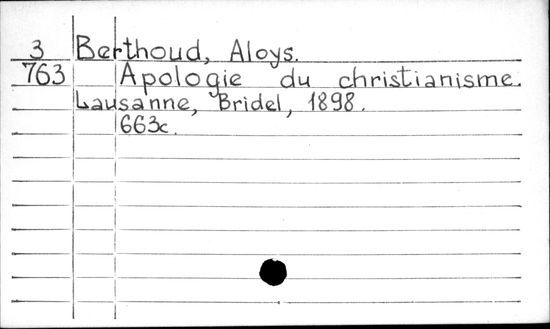 3 Berthoud, Aloys.
763 Apologie du christianisme.
Lausanne, Bridel, 1898.
663c.